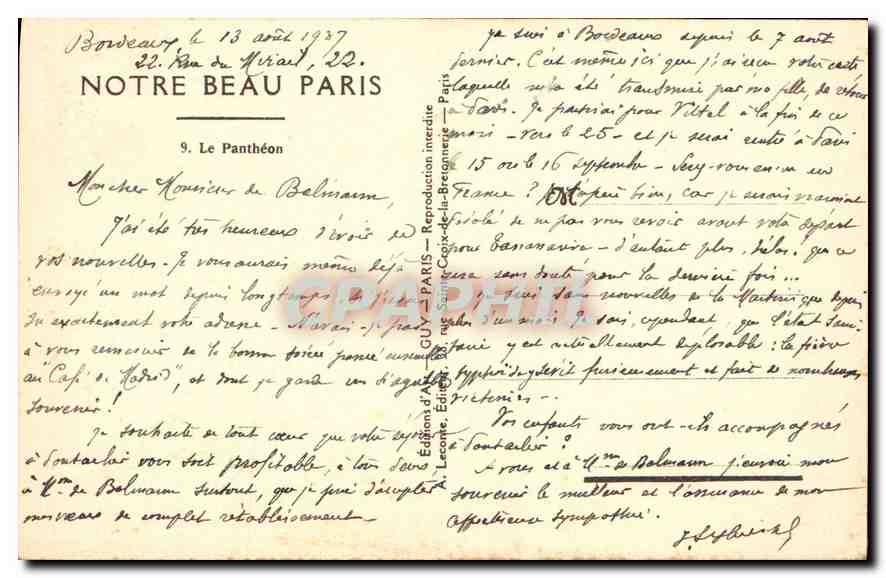 Bordeaux, le 13 août 1937
22, Rue du Mirail, 22.
NOTRE BEAU PARIS
9. Le Panthéon
Mon cher Monsieur de Belmann,
J'ai été très heureux d'avoir de
vos nouvelles. Je vous aurais même déjà
envoyé un mot depuis longtemps si j'avais
su exactement votre adresse. N'avais-je pas
à vous remercier de la bonne soirée passée ensemble
au "Café de Madrid", et dont je garde un agréable
souvenir!
Je souhaite de tout cœur que votre séjour
à Pontarlier vous soit profitable, à tous deux,
à Mme de Belmann surtout, que je prie d'accepter
mes vœux de complet rétablissement.
Editions d'Art GUY — PARIS — Reproduction interdite
A. Leconte, Editeur, 38, rue Sainte-Croix-de-la-Bretonnerie — Paris
CPAPHIL
Je suis à Bordeaux depuis le 7 août
dernier. C'est même ici que j'ai reçu votre carte
laquelle m'a été transmise par ma fille, de retour
à Paris. Je partirai pour Vittel à la fin de ce
mois - vers le 25 - et je serai rentré à Paris
le 15 ou le 16 septembre. Serez-vous encore en
France? bien, car je serais vraiment
désolé de ne pas vous revoir avant votre départ
pour Tananarive - d'autant plus, hélas, que ce
sera sans doute pour la dernière fois...
Je suis sans nouvelles de la Martinique depuis
plus d'un mois. Je sais, cependant, que l'état sani-
taire y est actuellement déplorable: la fièvre
typhoïde y sévit furieusement et fait de nombreuses
victimes.
Vos enfants vous ont-ils accompagnés
à Pontarlier?
A vous et à Mme de Belmann j'envoie mon
souvenir le meilleur et l'assurance de mon
affectueuse sympathie.